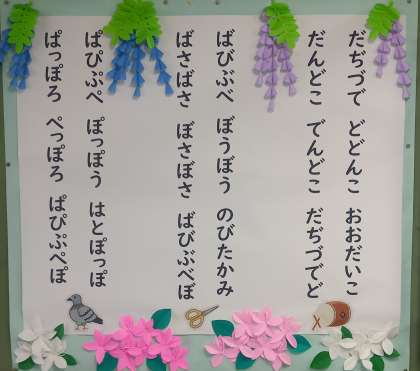 だぢづで どどんこ おおだいこ
だんどこ でんどこ だぢづでど
ばびぶべ ぼうぼう のびたかみ
ばさばさ ぼさぼさ ばびぶべぼ
ぱぴぷぺ ぽっぽう はとぽっぽ
ぱっぽろ ぺっぽろ ぱぴぷぺぽ